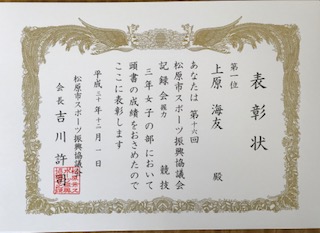 表彰状
第一位
上原 海友 殿
あなたは 第十六回
松原市スポーツ振興協議会
記録会 握力 競技
三年女子の部において
頭書の成績をおさめたので
ここに表彰します
平成三十年十二月一日
松原市スポーツ振興協議会
会長 吉川 許